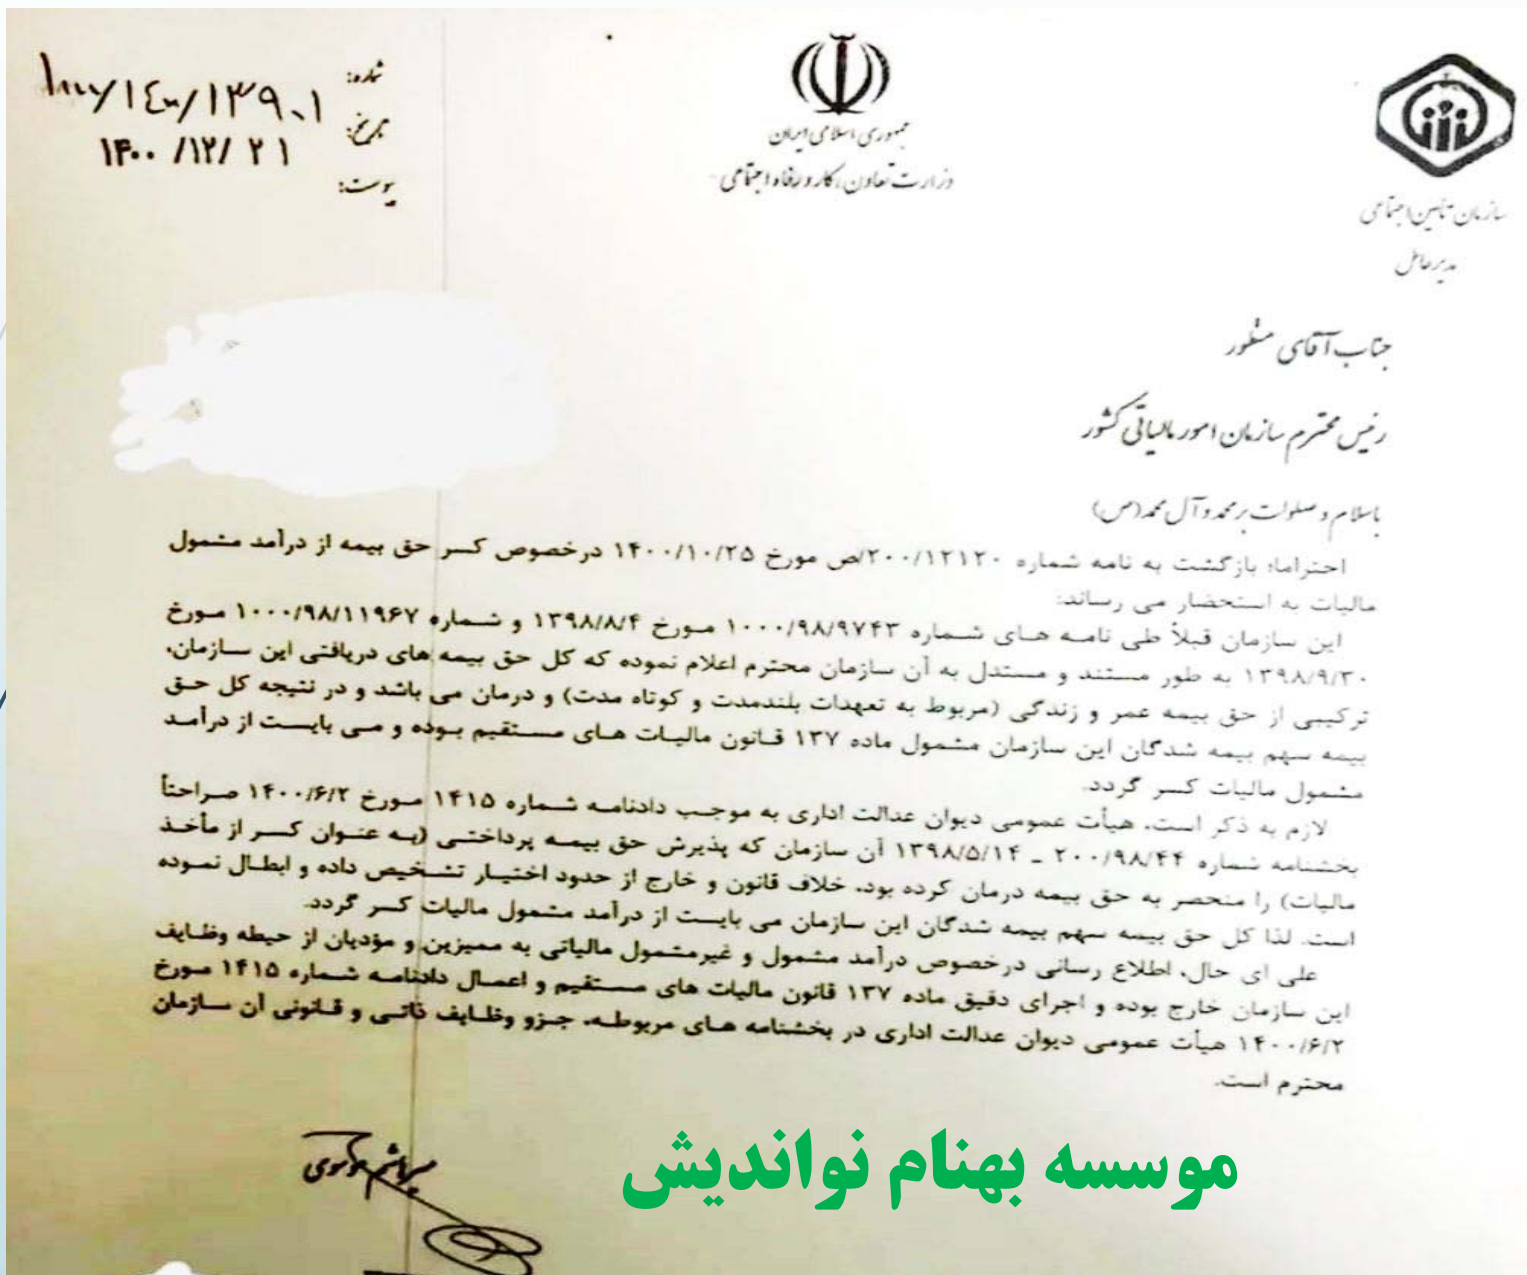 شماره:
تاریخ:
۱۴۰۰/۱۲/۲۱
پیوست:
جمهوری اسلامی ایران
وزارت تعاون، کار و رفاه اجتماعی
سازمان تأمین اجتماعی
مدیرعامل
جناب آقای منظور
رئیس محترم سازمان امور مالیاتی کشور
باسلام و صلوات بر محمد و آل محمد (ص)
احتراماً؛ بازگشت به نامه شماره ۲۰۰/۱۲۱۲۰/ص مورخ ۱۴۰۰/۱۰/۲۵ درخصوص کسر حق بیمه از درآمد مشمول
مالیات به استحضار می رساند:
این سازمان قبلاً طی نامه های شماره ۱۰۰۰/۹۸/۹۷۴۳ مورخ ۱۳۹۸/۸/۴ و شماره ۱۰۰۰/۹۸/۱۱۹۶۷ مورخ
۱۳۹۸/۹/۳۰ به طور مستند و مستدل به آن سازمان محترم اعلام نموده که کل حق بیمه های دریافتی این سازمان،
ترکیبی از حق بیمه عمر و زندگی (مربوط به تعهدات بلندمدت و کوتاه مدت) و درمان می باشد و در نتیجه کل حق
بیمه سهم بیمه شدگان این سازمان مشمول ماده ۱۳۷ قانون مالیات های مستقیم بوده و می بایست از درآمد
مشمول مالیات کسر گردد.
لازم به ذکر است، هیأت عمومی دیوان عدالت اداری به موجب دادنامه شماره ۱۴۱۵ مورخ ۱۴۰۰/۶/۲ صراحتاً
بخشنامه شماره ۲۰۰/۹۸/۴۴ ـ ۱۳۹۸/۵/۱۴ آن سازمان که پذیرش حق بیمه پرداختی (به عنوان کسر از مأخذ
مالیات) را منحصر به حق بیمه درمان کرده بود، خلاف قانون و خارج از حدود اختیار تشخیص داده و ابطال نموده
است. لذا کل حق بیمه سهم بیمه شدگان این سازمان می بایست از درآمد مشمول مالیات کسر گردد.
علی ای حال، اطلاع رسانی درخصوص درآمد مشمول و غیرمشمول مالیاتی به ممیزین و مؤدیان از حیطه وظایف
این سازمان خارج بوده و اجرای دقیق ماده ۱۳۷ قانون مالیات های مستقیم و اعمال دادنامه شماره ۱۴۱۵ مورخ
۱۴۰۰/۶/۲ هیأت عمومی دیوان عدالت اداری در بخشنامه های مربوطه، جزو وظایف ذاتی و قانونی آن سازمان
محترم است.
میرهاشم موسوی
موسسه بهنام نواندیش